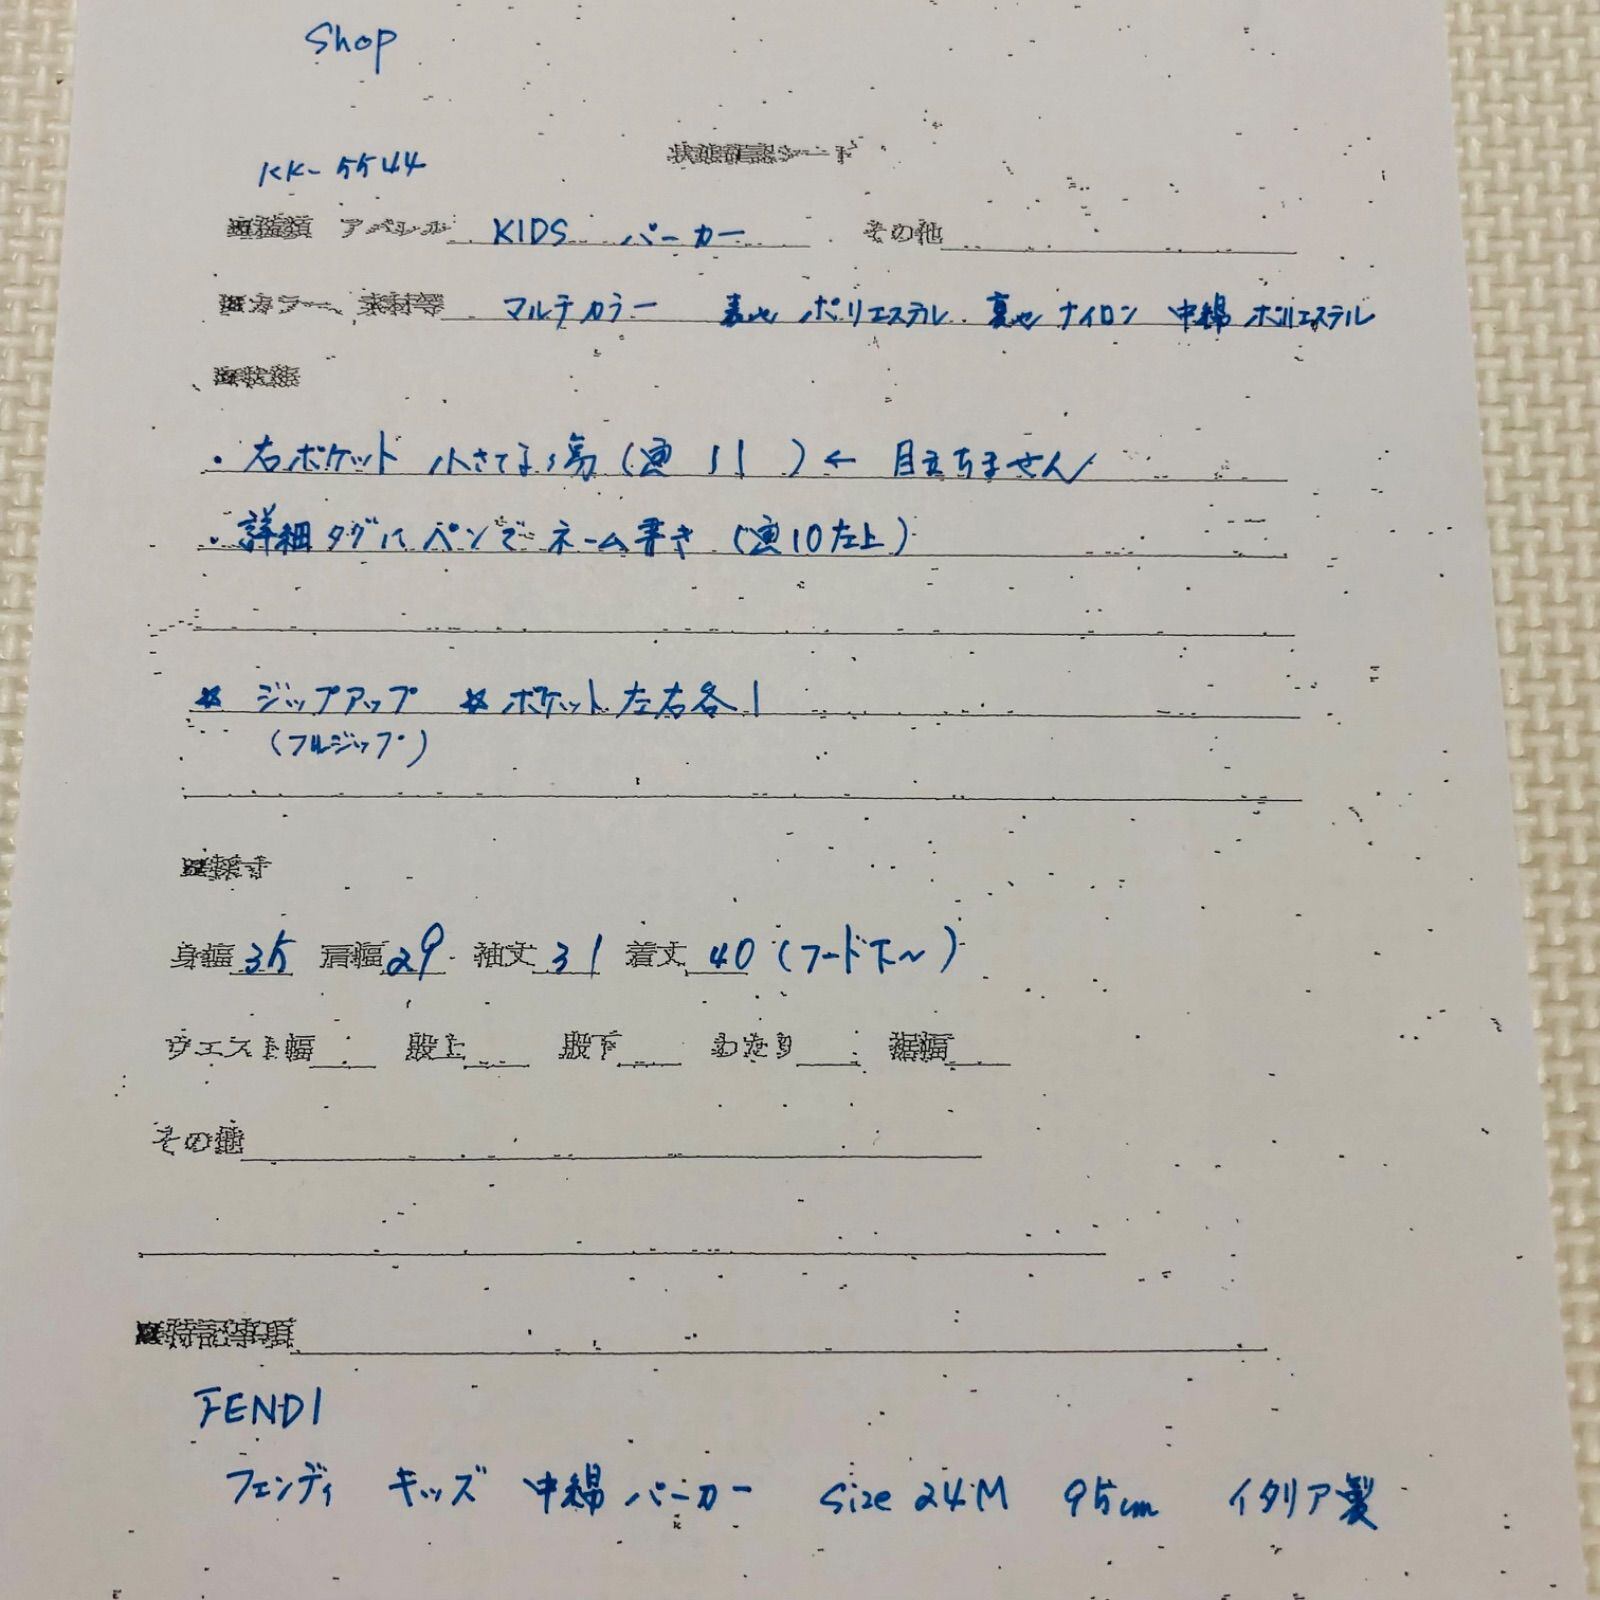 Shop
KK-5544
状態確認シート
■種類 アパレル KIDS パーカー その他
■カラー、素材等 マルチカラー 表地 ポリエステル 裏地 ナイロン 中綿 ポリエステル
■状態
・右ポケット 小さな傷(画11)← 目立ちません
・詳細タグにペンでネーム書き(画10左上)
* ジップアップ * ポケット左右各1
(フルジップ)
■採寸
身幅 35 肩幅 29 袖丈 31 着丈 40 (フード下〜)
ウエスト幅 股上 股下 わたり 裾幅
その他
■特記事項
FENDI
フェンディ キッズ 中綿 パーカー size 24M 95cm イタリア製